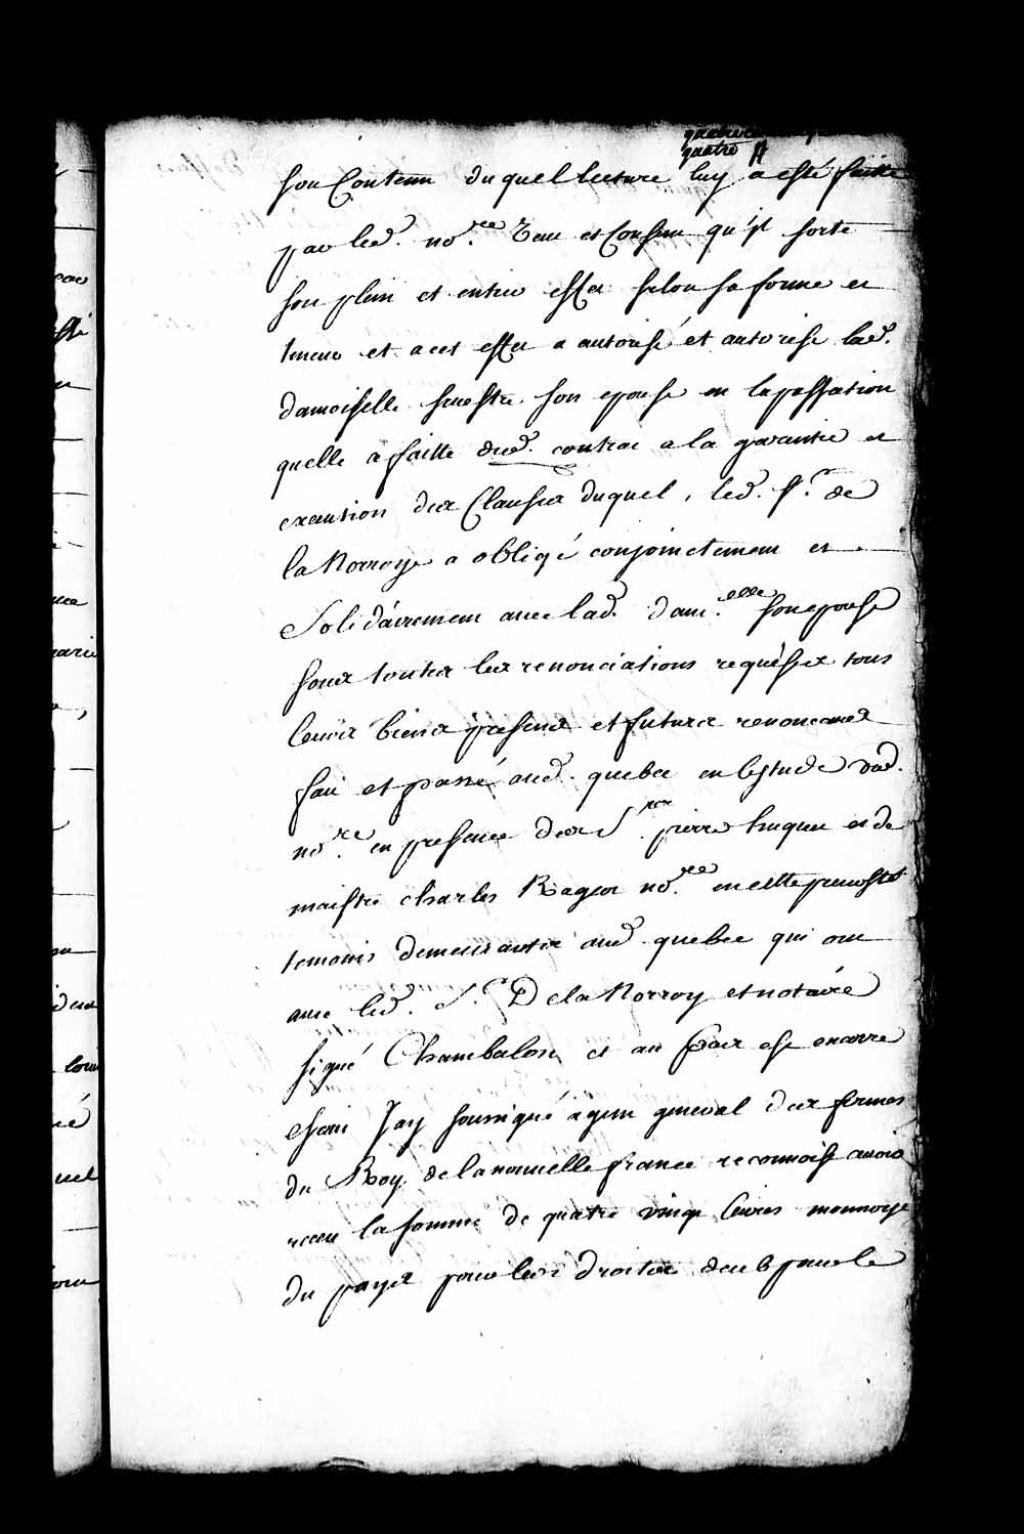 quatre
son Contenu duquel lecture luy a esté faitte
par led. no.re Veu et Consen qu'il sorte
son plein et entier effet selon sa forme et
teneur et a cet effet a autorisé et autorise lad.
damoiselle son epouse en la passation
quelle a faitte dud. contrat a la garantie et
execution des Clauses duquel, led. Sr. de
la Norroye a obligé conjoinctement et
Solidairement avec lad. dam.elle son epouse
sous toutes les renonciations requises tous
leurs biens presens et futurs renonceans
fait et passé aud. quebec en lestude dud.
no.re en presence des Srs pierre huguet et de
maistre charles Rageot no.re en cette prevosté
temoins demeurantes aud. quebec qui ont
avec led. Sr. De la Norroy et notaire
signé Chambalon et au bas est encorre
escrit Jay soussigné agent general des fermes
du Roy de la nouvelle france reconnois avoir
receu la somme de quatre vingt livres monnoye
du payis pour les droites deub pour le